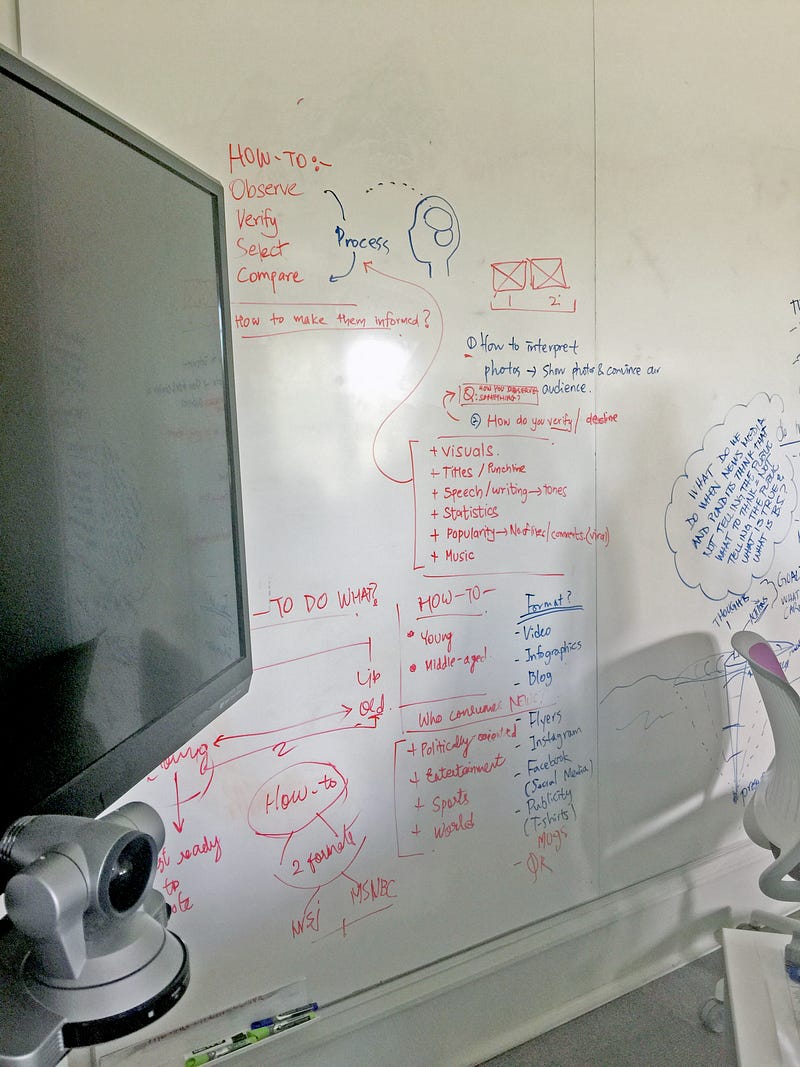 HOW-TO:-
Observe
Verify
Select
Compare
Process
How to make them informed?
1 2
① How to interpret
photos → Show photos & convince our
audience.
Q: HOW YOU OBSERVE
SOMETHING?
② How do you verify/
+ Visuals.
+ Titles / Punchline
+ Speech/writing → tones
+ Statistics
+ Popularity → No of lives/comments.(viral)
+ Music
TO DO WHAT?
Old
2
ready
to
How-to
2 formats
WSJ MSNBC
HOW-TO-
Young
Middle-aged
Who consumes NEWS?
+ Politically-oriented
+ Entertainment
+ Sports
+ World
Format?
- Video
- Infographics
- Blog
- Flyers
- Instagram
- Facebook
(Social Media)
- Publicity
(T-shirts)
MUGS
- QR
WHAT DO WE
DO WHEN NEWS MEDIA
AND PUNDITS THINK THAT
NOT TELLING THE PUBLIC
WHAT TO THINK = NOT
TELLING THE PUBLIC
WHAT IS TRUE &
WHAT IS BS?
THOUGHTS
GOAL
WHAT